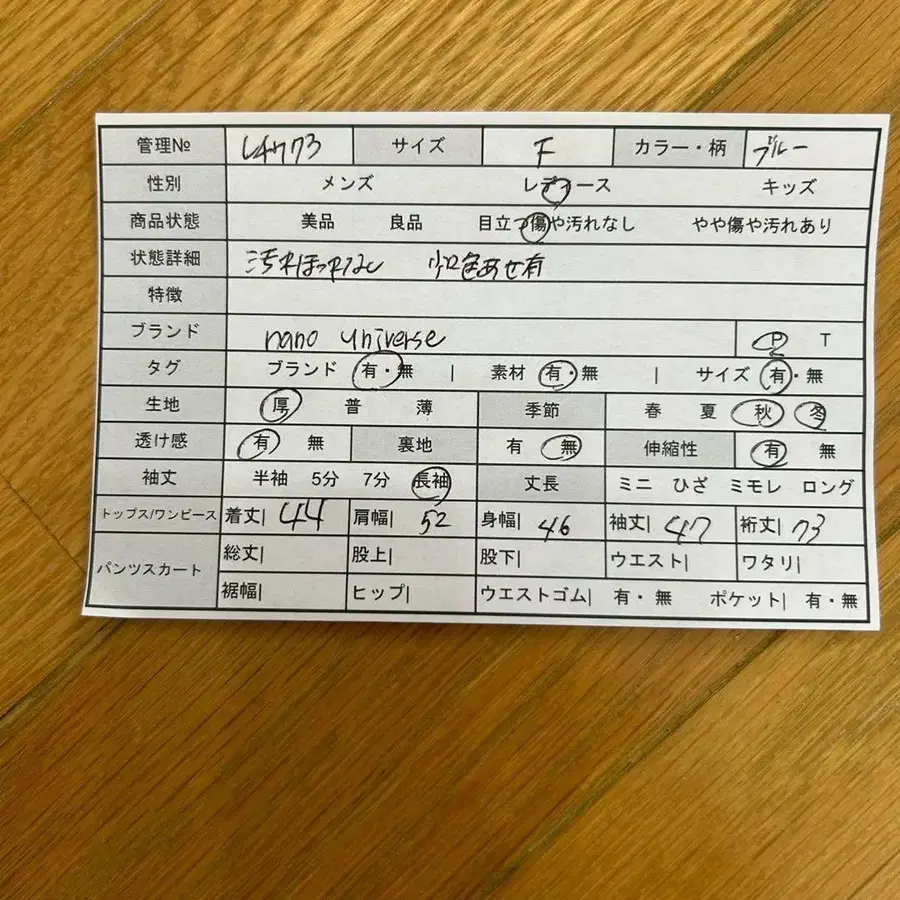 管理№ L4773 サイズ F カラー・柄 ブルー
性別 メンズ レディース キッズ
商品状態 美品 良品 目立つ傷や汚れなし やや傷や汚れあり
状態詳細 汚れほつれなし 少口色あせ有
特徴
ブランド nano universe P T
タグ ブランド 有・無 | 素材 有・無 | サイズ 有・無
生地 厚 普 薄 季節 春 夏 秋 冬
透け感 有 無 裏地 有 無 伸縮性 有 無
袖丈 半袖 5分 7分 長袖 丈長 ミニ ひざ ミモレ ロング
トップス/ワンピース 着丈| 44 肩幅| 52 身幅| 46 袖丈| 47 裄丈| 73
パンツスカート 総丈| 股上| 股下| ウエスト| ワタリ|
裾幅| ヒップ| ウエストゴム| 有・無 ポケット| 有・無